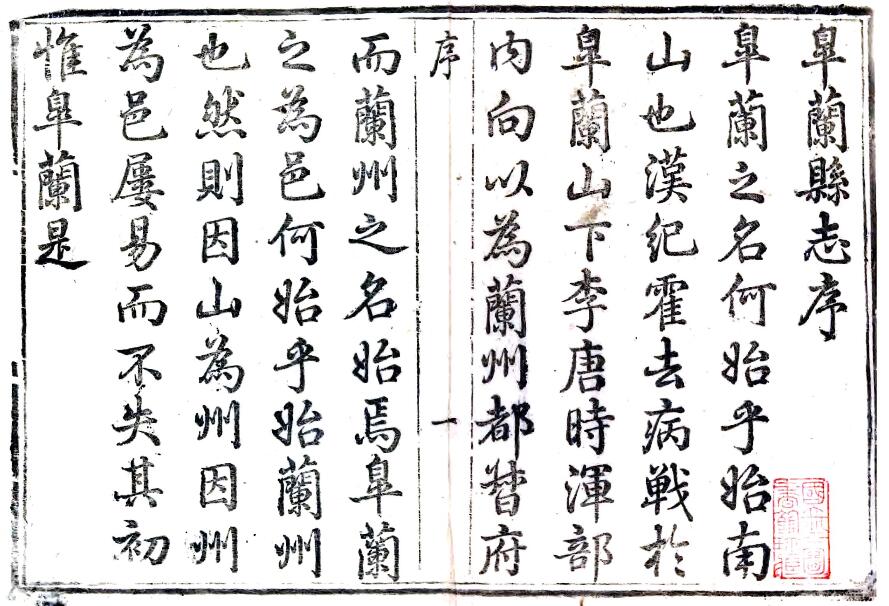 皐蘭縣志序
皐蘭之名何始乎始南
山也漢紀霍去病戰於
皐蘭山下李唐時渾部
内向以為蘭州都督府
序
一
而蘭州之名始焉皐蘭
之為邑何始乎始蘭州
也然則因山為州因州
為邑屡易而不失其初
惟皐蘭是